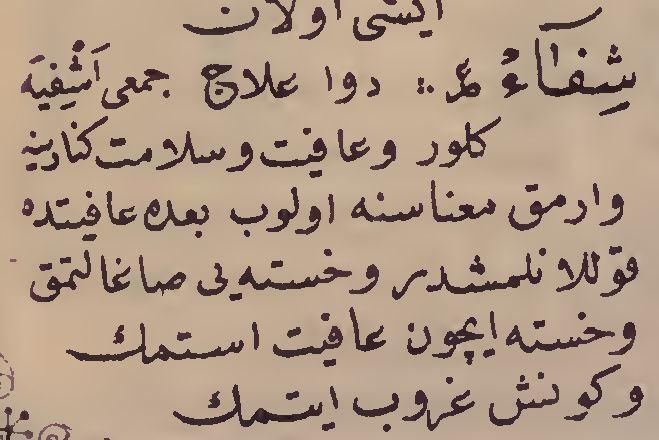 ايشى اولان
شِفَآءٌ ع ∴ دوا علاج جمعى اَشْفِيَه
كلور وعافيت وسلامت كنارينه
وارمق معناسنه اولوب بعده عافيتده
قوللانلمشدر وخسته يى صاغالتمق
وخسته ايچون عافيت استمك
وكونش غروب ايتمك